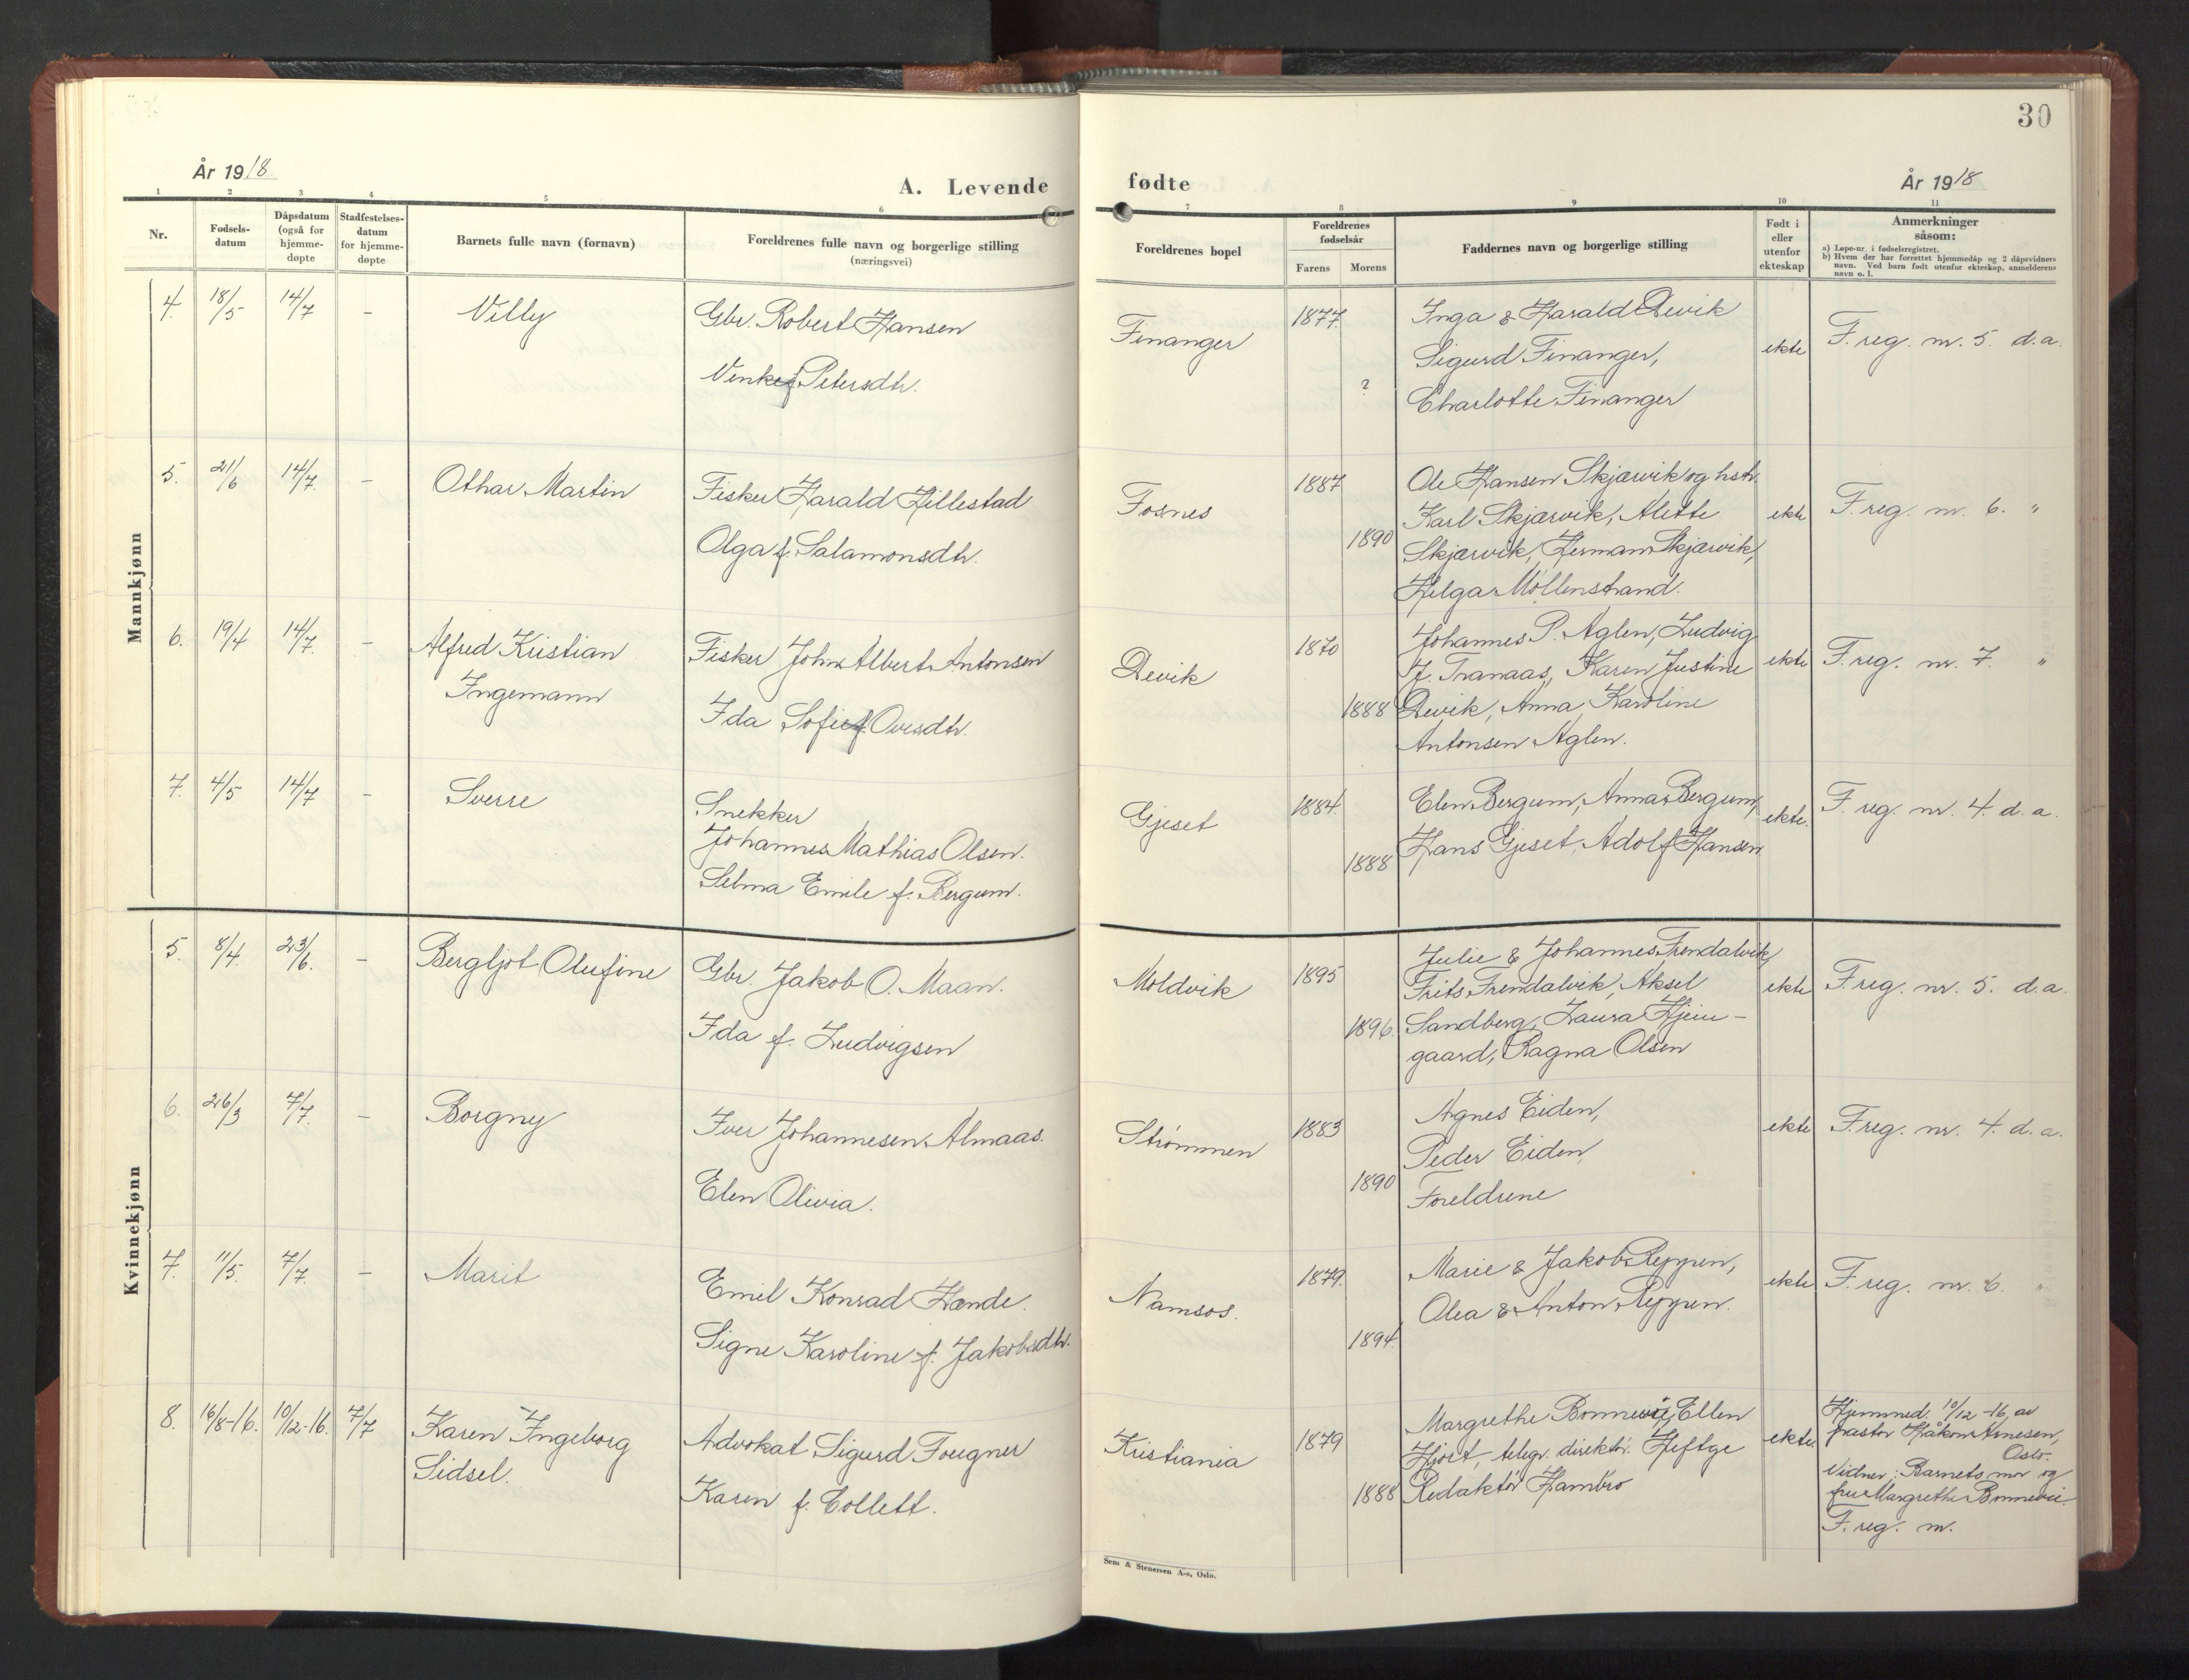 30
År 1918
A. Levende fødte
År 1918
1 2 3 4 5 6 7 8 9 10 11
Nr.
Fødsels-
datum
Dåpsdatum
(også for
hjemme-
døpte
Stadfestelses-
datum
for hjemme-
døpte
Barnets fulle navn (fornavn)
Foreldrenes fulle navn og borgerlige stilling
(næringsvei)
Foreldrenes bopel
Foreldrenes
fødselsår
Farens Morens
Faddernes navn og borgerlige stilling
Født i
eller
utenfor
ekteskap
Anmerkninger
såsom:
a) Løpe-nr. i fødselsregistret.
b) Hvem der har forrettet hjemmedåp og 2 dåpsvidners
navn. Ved barn født utenfor ekteskap, anmelderens
navn o. l.
Mannkjønn
4. 18/5 14/7 – Villy
Gbr. Robert Hansen
Venke f. Petersdtr.
Finanger
1877.
?
Inga & Harald Devik
Sigurd Finanger,
Charlotte Finanger
ekte
F. reg. nr. 5. d.a.
5. 21/6 14/7 – Othar Martin
Fisker Harald Hillestad
Olga f. Salamonsdtr.
Fosnes
1887
1890
Ole Hansen Skjærvik og hstr.
Karl Skjærvik, Alette
Skjærvik, Herman Skjærvik,
Helga Møllenstrand.
ekte
F. reg. nr. 6. "
6. 19/4 14/7 – Alfred Kristian
Ingemann
Fisker John Albert Antonsen
Ida Sofie f. Ovesdtr.
Devik
1870
1888
Johannes P. Aglen, Ludvig
J. Tranaas, Karen Justine
Devik, Anna Karoline
Antonsen Aglen.
ekte
F. reg. nr. 7. "
7. 4/5 14/7 – Sverre
Snekker
Johannes Mathias Olsen.
Selma Emile f. Bergum.
Gjeset
1884.
1888
Elen Bergum, Anna Bergum,
Hans Gjeset, Adolf Hansen
ekte.
F. reg. nr. 4. d.a.
Kvinnekjønn
5. 8/4. 23/6. – Bergljot Olufine
Gbr. Jakob O. Maan.
Ida f. Ludvigsen
Moldvik
1895
1896.
Julie & Johannes Frendalvik,
Frits Frendalvik, Aksel
Sandberg, Laura Hjem-
gaard, Ragna Olsen
ekte
F. reg. nr. 5. d.a.
6. 26/3 7/7. – Borgny
Iver Johannesen Almaas.
Elen Olivia.
Strømmen
1883
1890
Agnes Eiden,
Peder Eiden,
Foreldrene
ekte
F. reg. nr. 4. d.a.
7. 11/5. 7/7. – Marit
Emil Konrad Hande.
Signe Karoline f. Jakobsdtr.
Namsos.
1879.
1894.
Marie & Jakob Reppen,
Olea & Anton Reppen.
ekte
F. reg. nr. 6. "
8. 16/8-16. 10/12-16. 7/7 Karen Ingeborg
Sidsel.
Advokat Sigurd Fougner
Karen f. Collett.
Kristiania
1879
1888
Margrethe Bonnevie, Ellen
Hjort, telegr. direktør. Heftye
Redaktør Hambro
ekte.
Hjemmed. 10/12-16, av
pastor Håkon Arnesen,
Oslo.
Vidner: Barnets mor og
frue Margrethe Bonnevie.
F. reg. nr.
Sem & Stenersen A-s, Oslo.